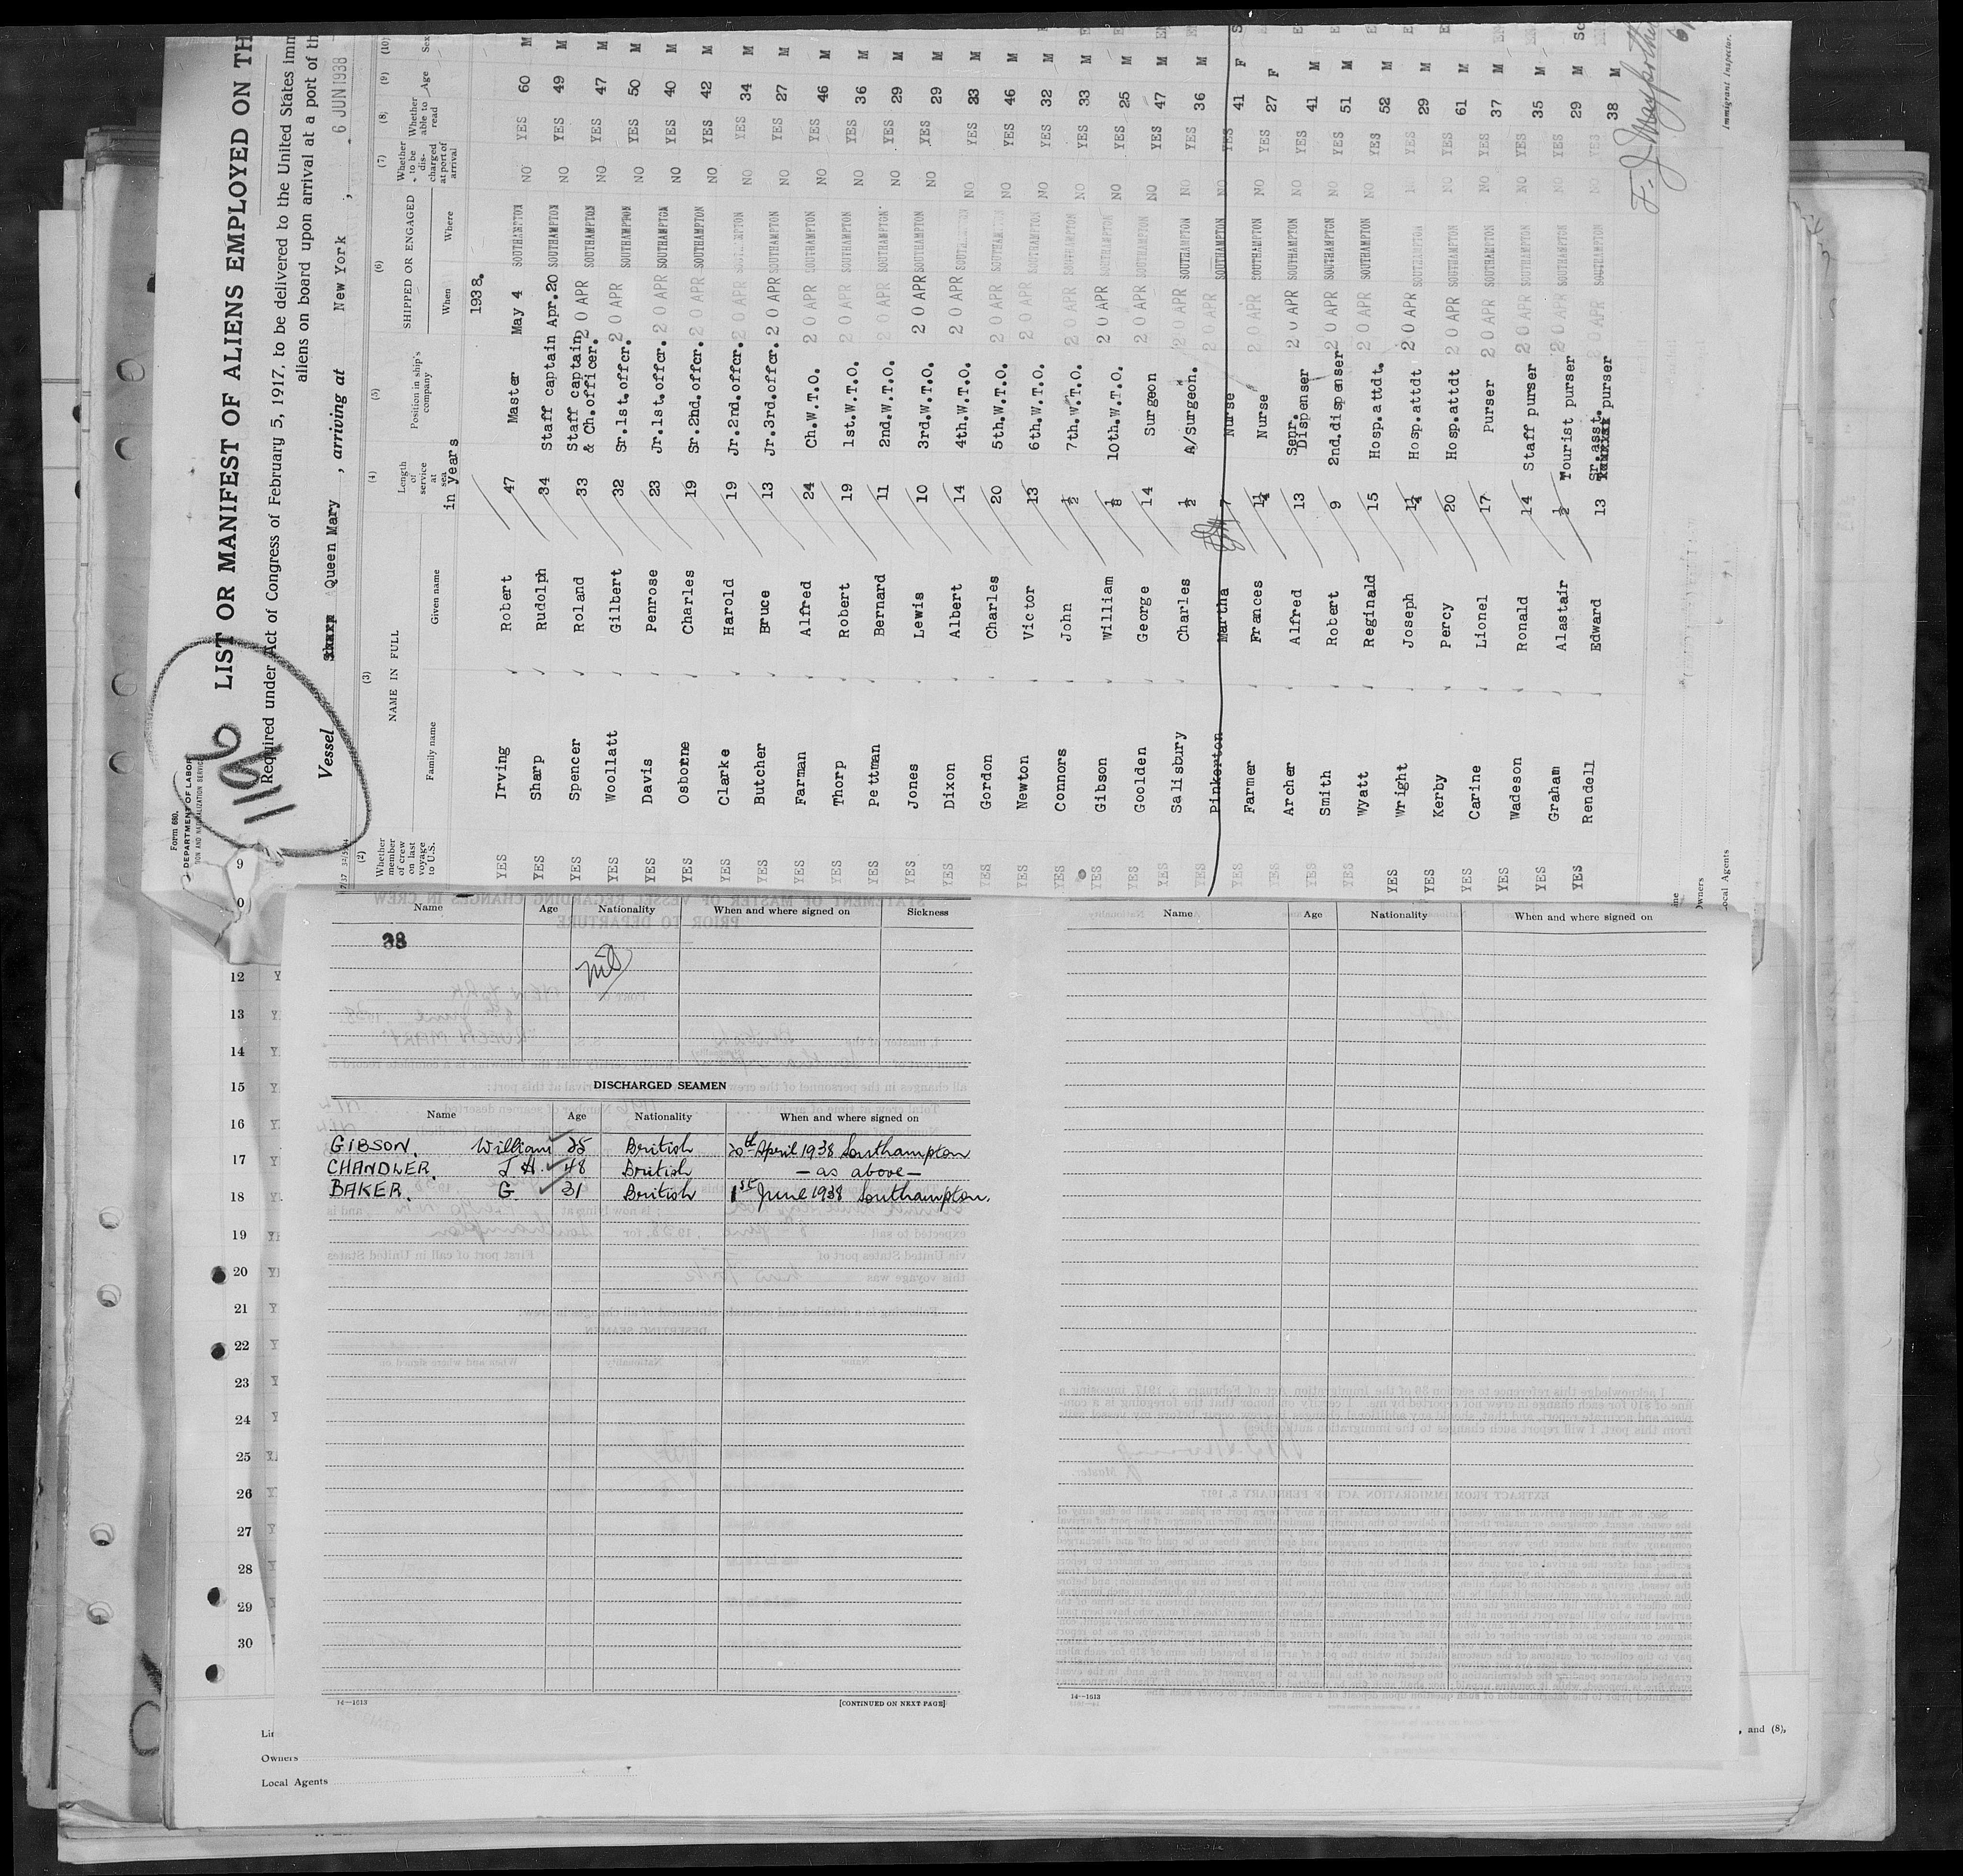 Form 680.
DEPARTMENT OF LABOR
1196
LIST OR MANIFEST OF ALIENS EMPLOYED ON TH
Required under Act of Congress of February 5, 1917, to be delivered to the United States imm
aliens on board upon arrival at a port of th
Vessel Queen Mary , arriving at New York , 6 JUN 1938
(2) (3) (4) (5) (6) (7) (8) (9) (10)
Whether member of crew on last voyage to U.S. NAME IN FULL Family name Given name Length of service at sea in years Position in ship's company SHIPPED OR ENGAGED When Where Whether to be discharged at port of arrival Whether able to read Age Sex
1938.
YES Irving Robert 47 Master May 4 SOUTHAMPTON NO YES 60 M
YES Sharp Rudolph 34 Staff captain Apr.20 SOUTHAMPTON NO YES 49 M
YES Spencer Roland 33 Staff captain & Ch.officer. 20 APR SOUTHAMPTON NO YES 47 M
YES Woollatt Gilbert 32 Sr.1st.offcr. 20 APR SOUTHAMPTON NO YES 50 M
YES Davis Penrose 23 Jr.1st.offcr. 20 APR SOUTHAMPTON NO YES 40 M
YES Osborne Charles 19 Sr.2nd.offcr. 20 APR SOUTHAMPTON NO YES 42 M
YES Clarke Harold 19 Jr.2nd.offcr. 20 APR SOUTHAMPTON NO YES 34 M
YES Butcher Bruce 13 Jr.3rd.offcr. 20 APR SOUTHAMPTON NO YES 27 M
YES Farman Alfred 24 Ch.W.T.O. 20 APR SOUTHAMPTON NO YES 46 M
YES Thorp Robert 19 1st.W.T.O. 20 APR SOUTHAMPTON NO YES 36 M
YES Pettman Bernard 11 2nd.W.T.O. 20 APR SOUTHAMPTON NO YES 29 M
YES Jones Lewis 10 3rd.W.T.O. 20 APR SOUTHAMPTON NO YES 29 M
YES Dixon Albert 14 4th.W.T.O. 20 APR SOUTHAMPTON NO YES 33 M
YES Gordon Charles 20 5th.W.T.O. 20 APR SOUTHAMPTON NO YES 46 M
YES Newton Victor 13 6th.W.T.O. 20 APR SOUTHAMPTON NO YES 32 M
YES Connors John 1/2 7th.W.T.O. 20 APR SOUTHAMPTON NO YES 33 M
YES Gibson William 1/8 10th.W.T.O. 20 APR SOUTHAMPTON NO YES 25 M
YES Goolden George 14 Surgeon 20 APR SOUTHAMPTON NO YES 47 M
YES Salisbury Charles 1/2 A/Surgeon. 20 APR SOUTHAMPTON NO YES 36 M
YES Pinkerton Martha 7 Nurse 20 APR SOUTHAMPTON NO YES 41 F
YES Farmer Frances Nurse 20 APR SOUTHAMPTON NO YES 27 F
YES Archer Alfred 13 Senr. Dispenser 20 APR SOUTHAMPTON NO YES 41 M
YES Smith Robert 9 2nd.dispenser 20 APR SOUTHAMPTON NO YES 51 M
YES Wyatt Reginald 15 Hosp.attdt. 20 APR SOUTHAMPTON NO YES 52 M
YES Wright Joseph Hosp.attdt 20 APR SOUTHAMPTON YES 29 M
YES Kerby Percy 20 Hosp.attdt 20 APR SOUTHAMPTON NO YES 61 M
YES Carine Lionel 17 Purser 20 APR SOUTHAMPTON NO YES 37 M
YES Wadeson Ronald 14 Staff purser 20 APR SOUTHAMPTON NO YES 35 M
YES Graham Alastair 1/2 Tourist purser 20 APR SOUTHAMPTON NO YES 29 M
YES Rendell Edward 13 Sr.asst. purser 20 APR SOUTHAMPTON NO YES 38 M
Immigrant Inspector.
Owners
Local Agents
Name Age Nationality When and where signed on Sickness
38
nil
DISCHARGED SEAMEN
Name Age Nationality When and where signed on
GIBSON. William 25 British 20th April 1938 Southampton
CHANDLER. J.H. 48 British — as above —
BAKER. G 31 British 1st June 1938 Southampton.
14—1613 [CONTINUED ON NEXT PAGE]
Name Age Nationality When and where signed on
14—1613
9
0
12
13
14
15
16
17
18
19
20
21
22
23
24
25
26
27
28
29
30
, and (8),
Owners
Local Agents